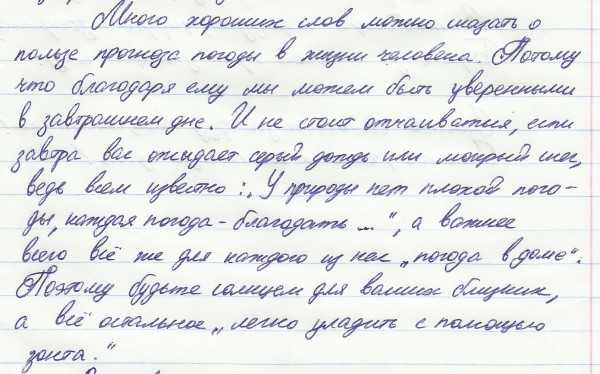 Много хороших слов можно сказать о
пользе прогноза погоды в жизни человека. Потому
что благодаря ему мы можем быть уверенными
в завтрашнем дне. И не стоит отчаиваться, если
завтра вас ожидает серый дождь или мокрый снег,
ведь всем известно: „У природы нет плохой пого-
ды, каждая погода - благодать ...", а важнее
всего всё же для каждого из нас „погода в доме".
Поэтому будьте солнцем для ваших близких,
а всё остальное „легко уладить с помощью
зонта."